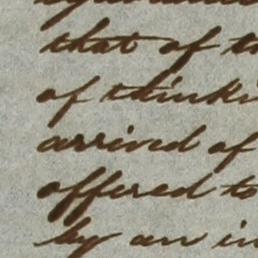 that of
of
arrived of
offered to
by an